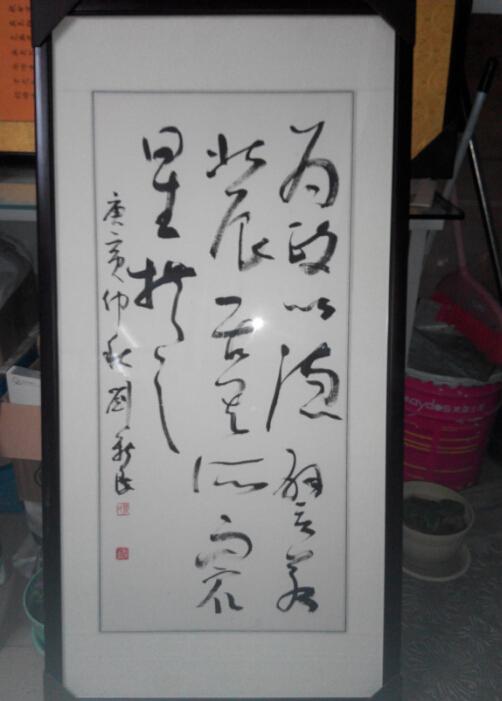 为政以德譬若
北辰居其所而众
星拱之
庚寅仲秋刘新民